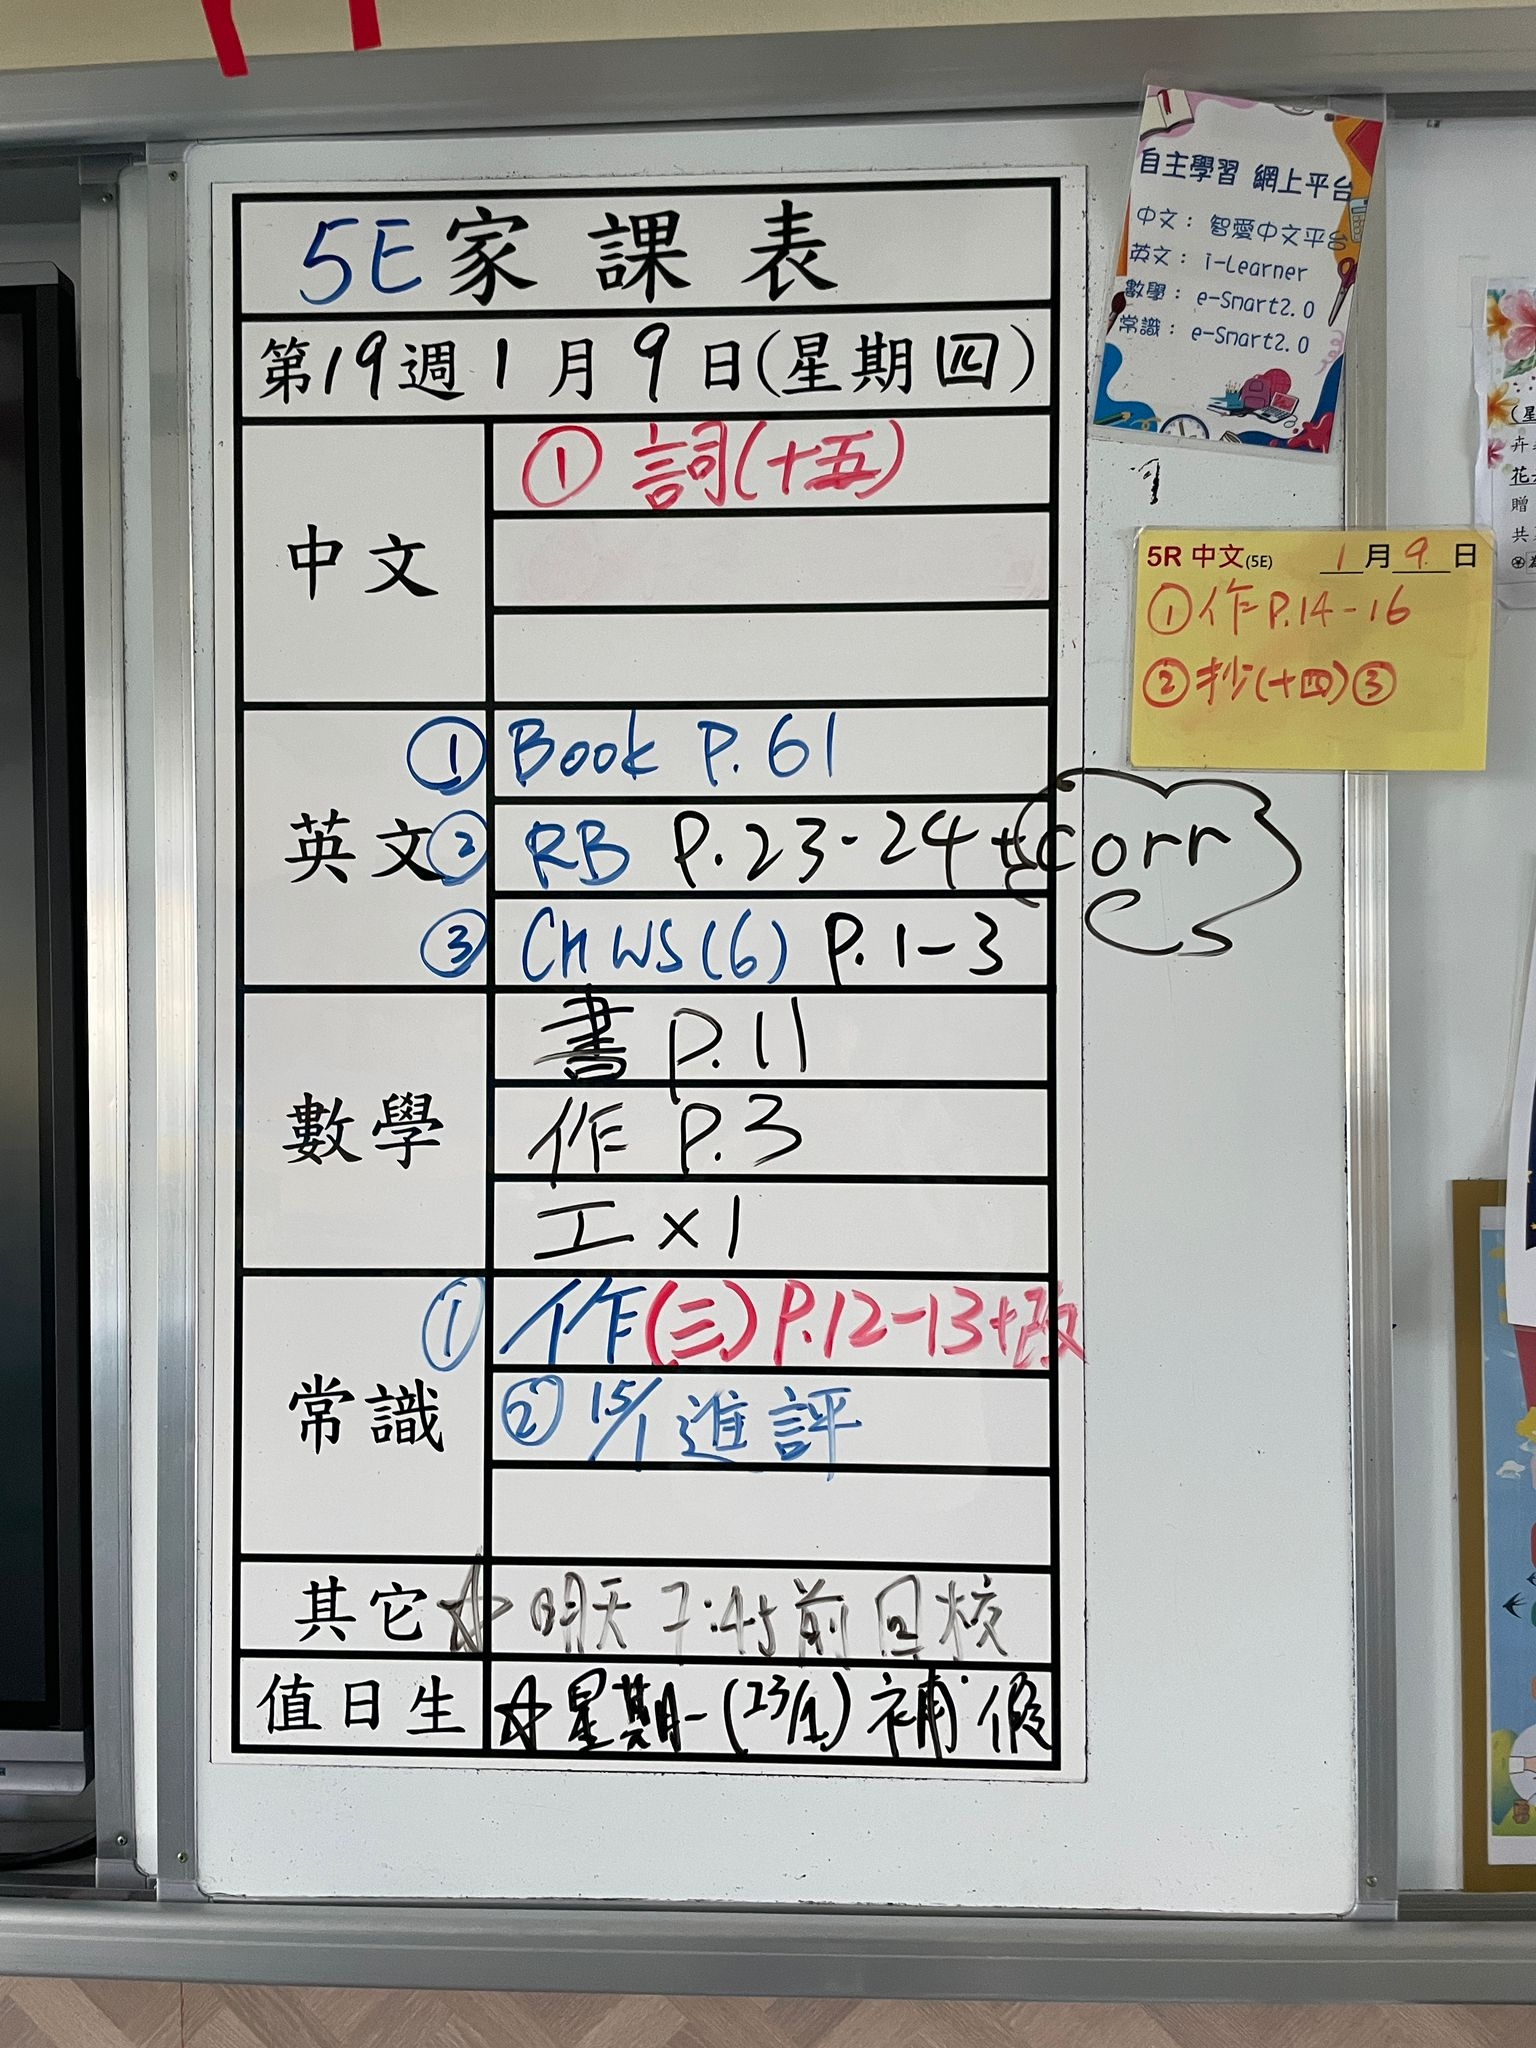 5E家課表
第19週1月9日(星期四)
中文
① 詞(十五)
英文
① Book P.61
② RB P.23-24 + corr
③ CH WS(6) P.1-3
數學
書 P.11
作 P.3
工 x 1
常識
① 作(三) P.12-13+改
② 15/1 進評
其它
☆ 明天7:45前回校
值日生
☆ 星期一(23/1) 補假
自主學習 網上平台
中文： 智愛中文平台
英文： i-Learner
數學： e-Smart2.0
常識： e-Smart2.0
5R 中文(5E) 1月9日
① 作 P.14-16
② 抄(十四)③